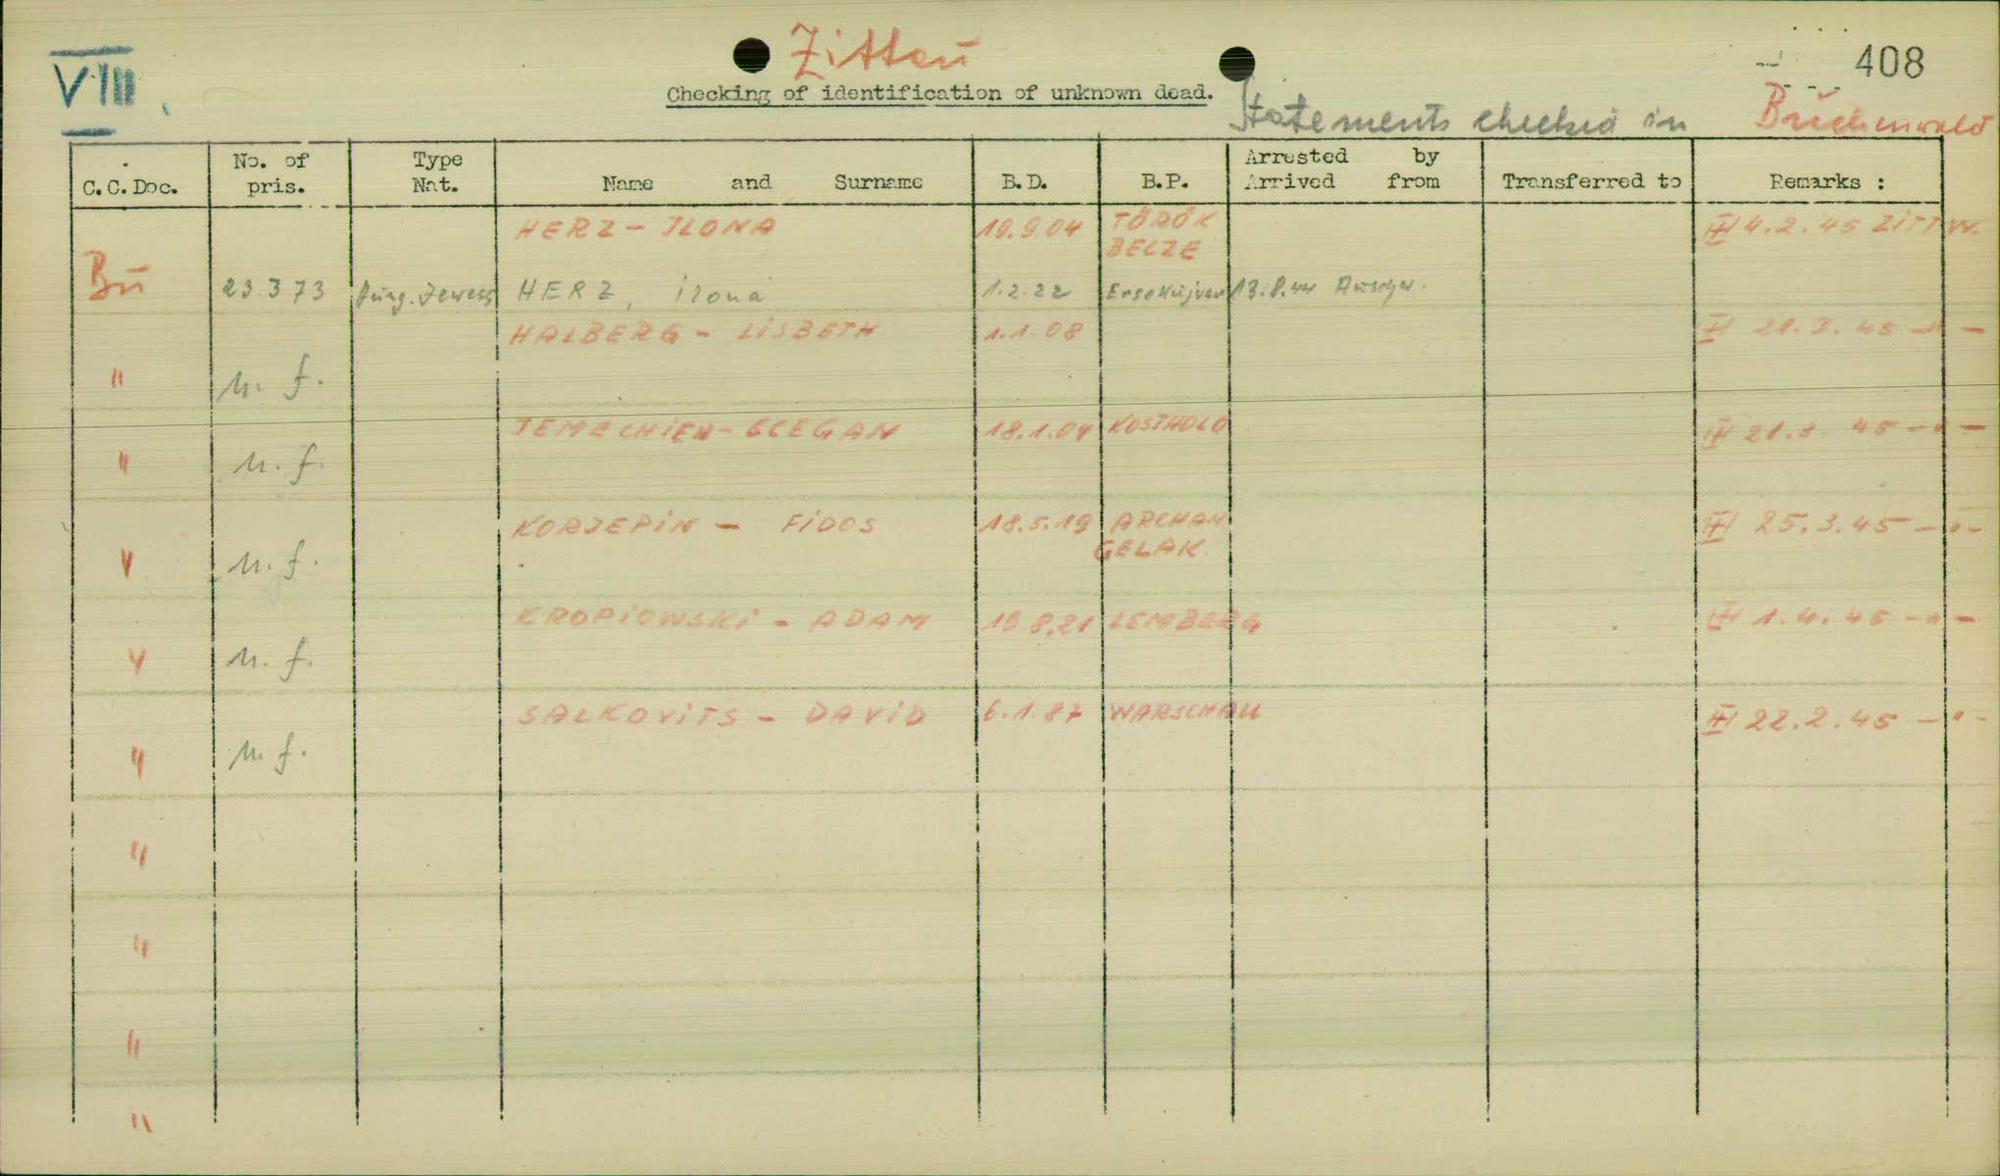 VIII
Zittau
408
Checking of identification of unknown dead.
Statements checked in Buchenwald
C.C.Doc. No. of pris. Type Nat. Name and Surname B.D. B.P. Arrested by Arrived from Transferred to Remarks :
HERZ - ILONA 19.9.04 TÖRÖK BELZE 4.2.45 ZITTW.
Bu 23373 Jewess HERZ, ilona 1.2.22 Ersekujvar 13.8.44
HALBERG - LISBETH 1.1.08 21.3.45 - " -
" n. f.
21.3.45 - " -
18.1.04
" n. f.
KORZEPIN - FIDOS 18.5.19 ARCHAN GELAK. 25.3.45 - " -
" n. f.
KROPIOWSKI - ADAM 19.8.21 LEMBERG 1.4.45 - " -
" n. f.
SALKOVITS - DAVID 6.1.87 WARSCHAU 22.2.45 - " -
" n. f.
"
"
"
"